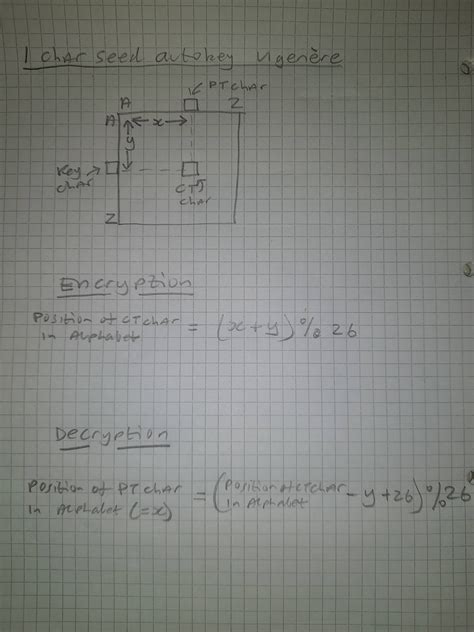 1 char seed autokey vigenère
PT char
A Z
A
x
y
Key char
CT char
Z
Encryption
Position of CT char in Alphabet = (x + y) % 26
Decryption
Position of PT char in Alphabet (=x) = (Position of CT char in Alphabet - y + 26) % 26